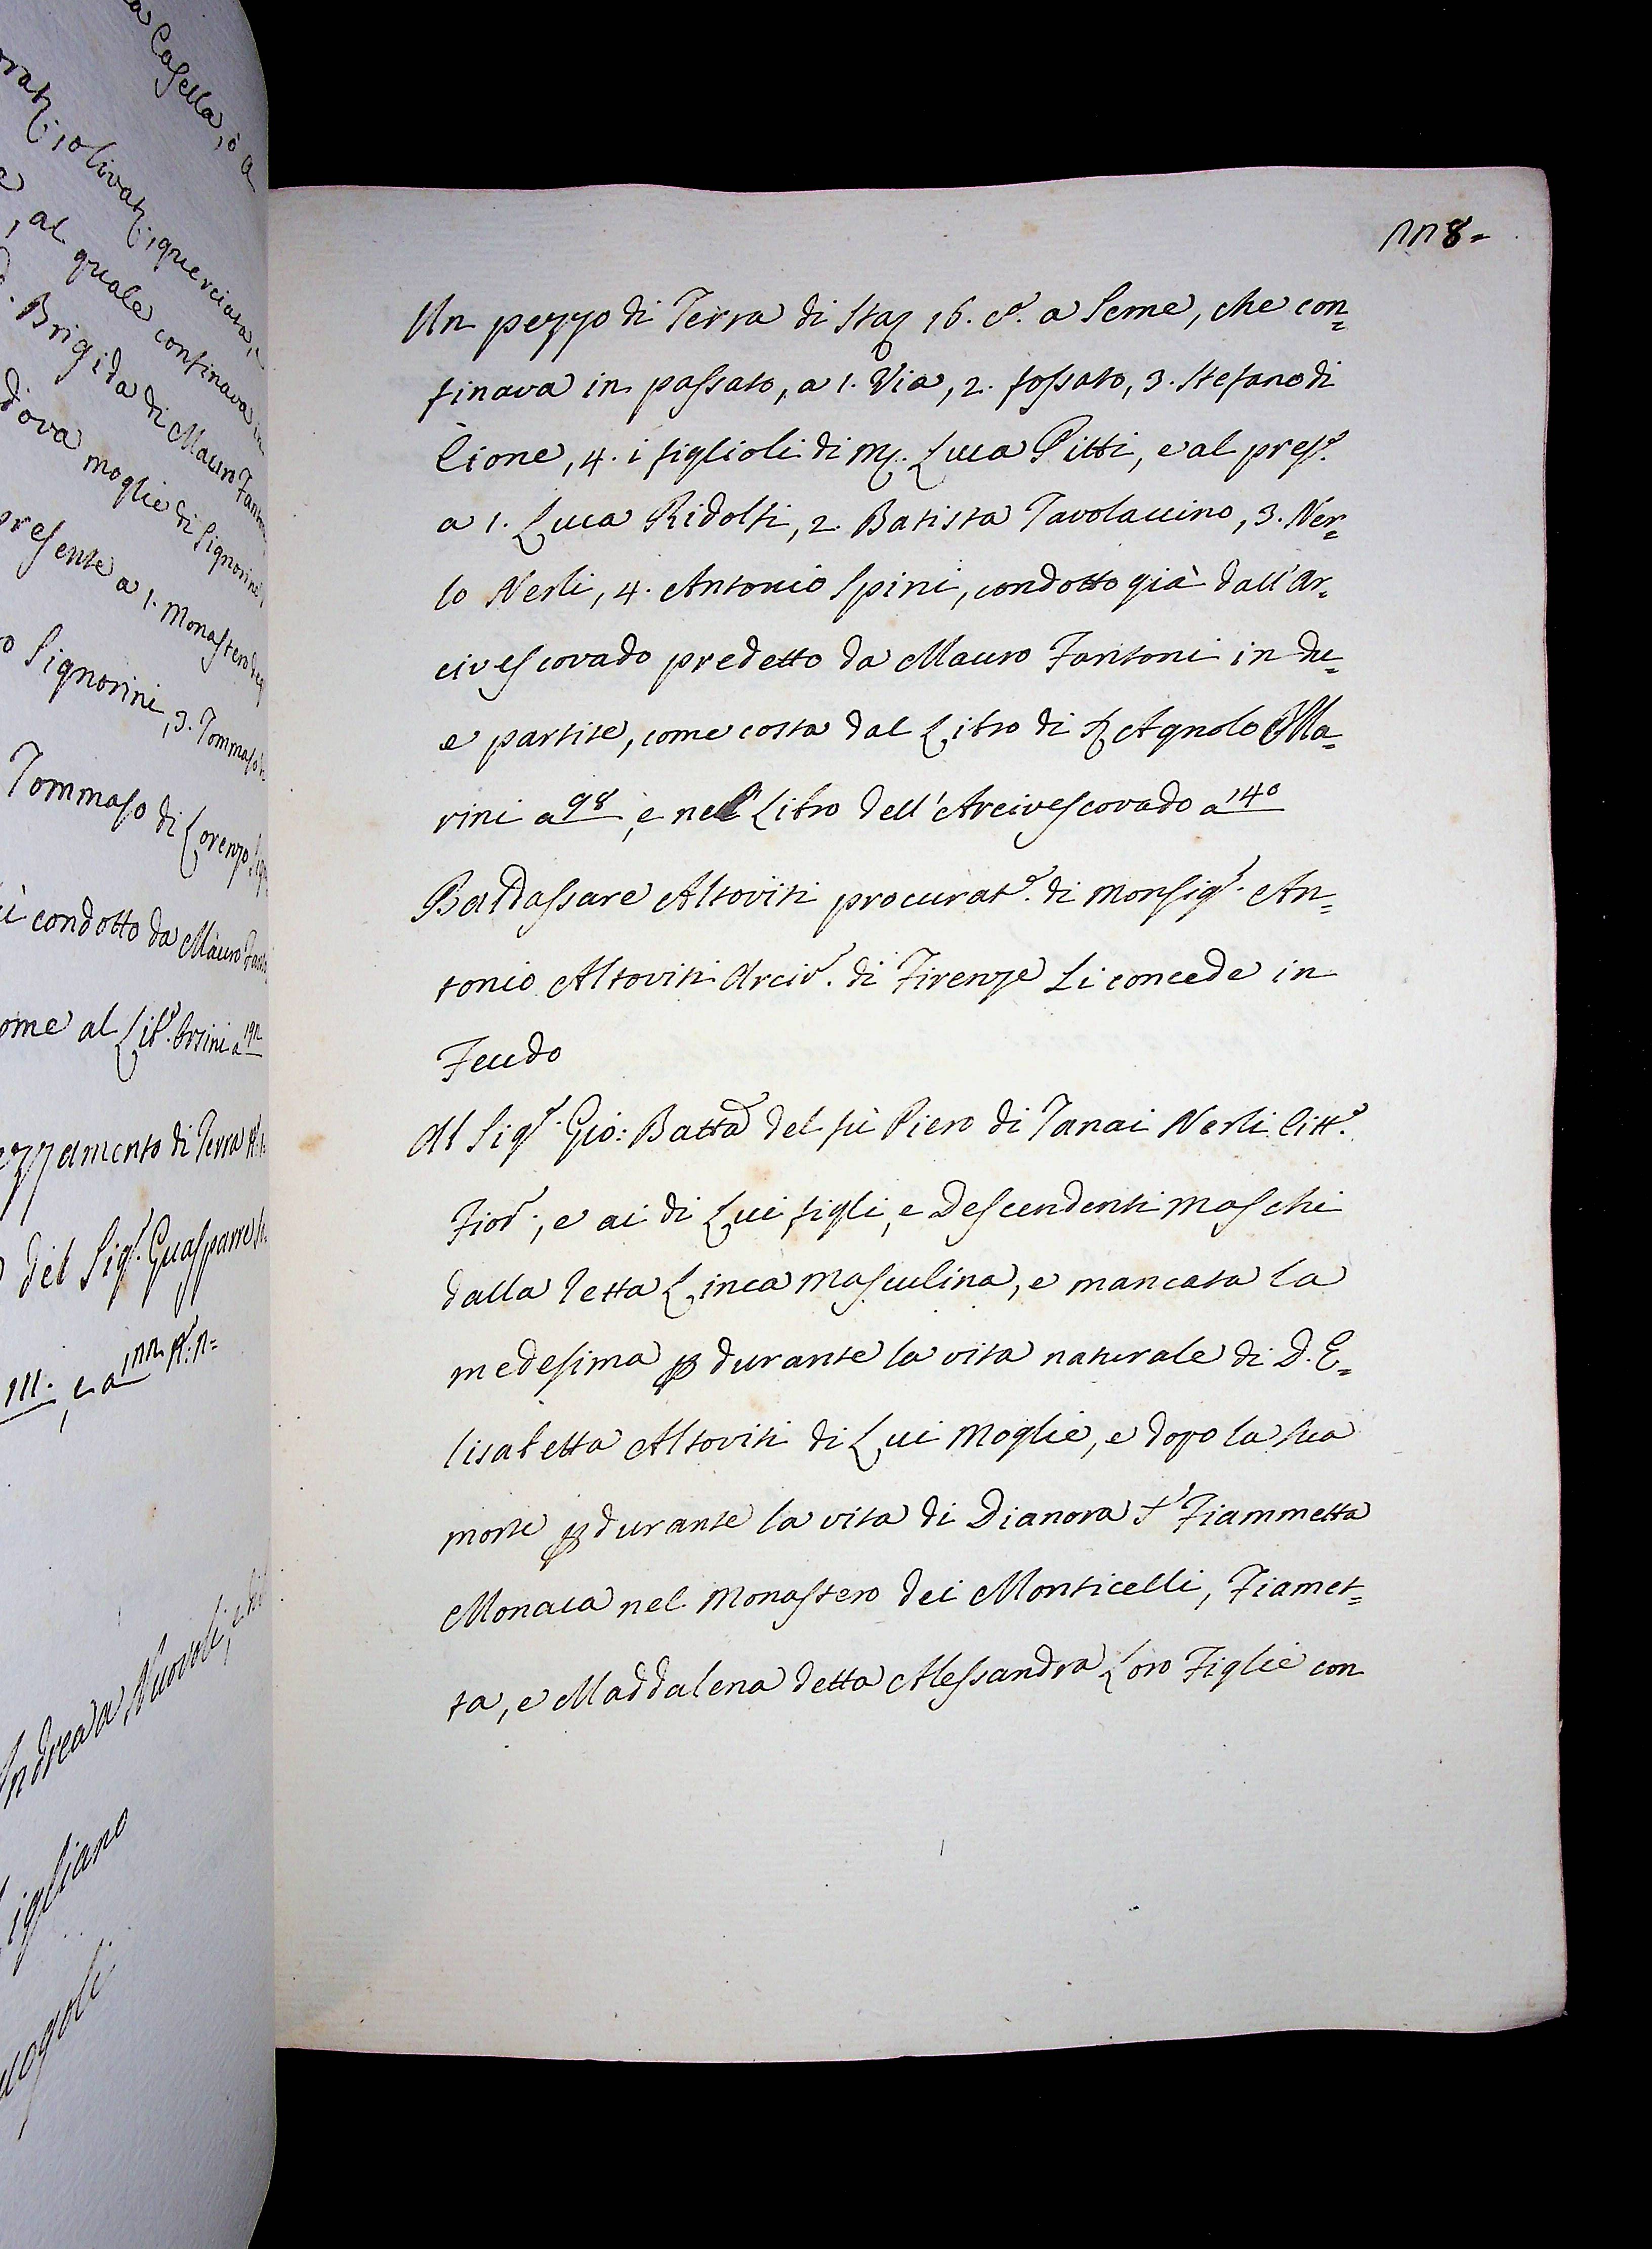 a Casella, ò a
orati, olivati, querciata,
al quale confinava in
Brigida di Mauro Fanto
dova moglie di Signorini,
presente a 1. Monastero degl
o Signorini, 3. Tommaso
Tommaso di Lorenzo Sig
condotto da Mauro Fanto
ome al Lib.º Orsini a 192
ezzamento di Terra
del Sig.r Guasparre
111. e a
Andrea a Nuovoli, e
igliano
ogoli
228=
Un pezzo di Terra di Staj 16. c.ª a Seme, che con=
finava in passato, a 1. Via, 2. fossato, 3. Stefano di
Lione, 4. i figlioli di M. Luca Pitti, e al pres.e
a 1. Luca Ridolfi, 2. Batista Tavolaccino, 3. Ner=
lo Nerli, 4. Antonio Spini, condotto già dall'Ar=
civescovado predetto da Mauro Fantoni in du=
e partite, come costa dal Libro di S. Agnolo Ma=
rini a 98, e nel Libro dell'Arcivescovado a 140
Baldassare Altoviti procurat.e di Monsig.r An=
tonio Altoviti Arciv.º di Firenze Li concede in
Feudo
Al Sig.r Gio: Batta del fù Piero di Tanai Nerli Citt.º
Fior.º, e ai di Lui figli, e Descendenti maschi
dalla detta Linea masculina, e mancata la
medesima p durante la vita naturale di D. E=
lisabetta Altoviti di Lui Moglie, e dopo la sua
morte p durante la vita di Dianora Fiammetta
Monaca nel Monastero dei Monticelli, Fiamet=
ta, e Maddalena detta Alessandra Loro Figlie con